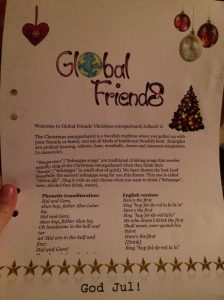 Global
Friends
Welcome to Global Friends' Christmas smorgasboard/Julbord! :)
The Christmas smorgasboard is a Swedish tradition where you gather with
your friends or family and eat all kinds of traditional Swedish food. Examples
are pickled herring, salmon, ham, meatballs, cheese and Janssons temptation
(a casserole).
"Snapsvisor"/"Schnapps songs" are traditional drinking songs that
usually sing at the Christmas smorgasboard when they drink their
"Snaps"/"Schnapps" (a small shot of spirit). We have chosen the best (and
hopefully the easiest) schnapps song for you this dinner. This one is called
"Helan går". Sing it with us and choose what you want in your "Schnapps"
beer, alcohol free drink, water).
Phonetic transliteration:
Hal and Gore,
shun hop, father Allan
Hal and Gore,
shun hop, father Allan ley
Oh handsome in the hell and
tar
an' Hal are in the half and
four
Hal and Gore!
English version:
Here's the first
Sing "hup fol-de-rol la la la la"
Here's the first
Sing "hup fol-de-rol la la"
He who doesn't drink the first
Shall never, ever quench his
thirst
Here's the first
(Drink)
Sing "hup fol-de-rol la la"
God Jul!